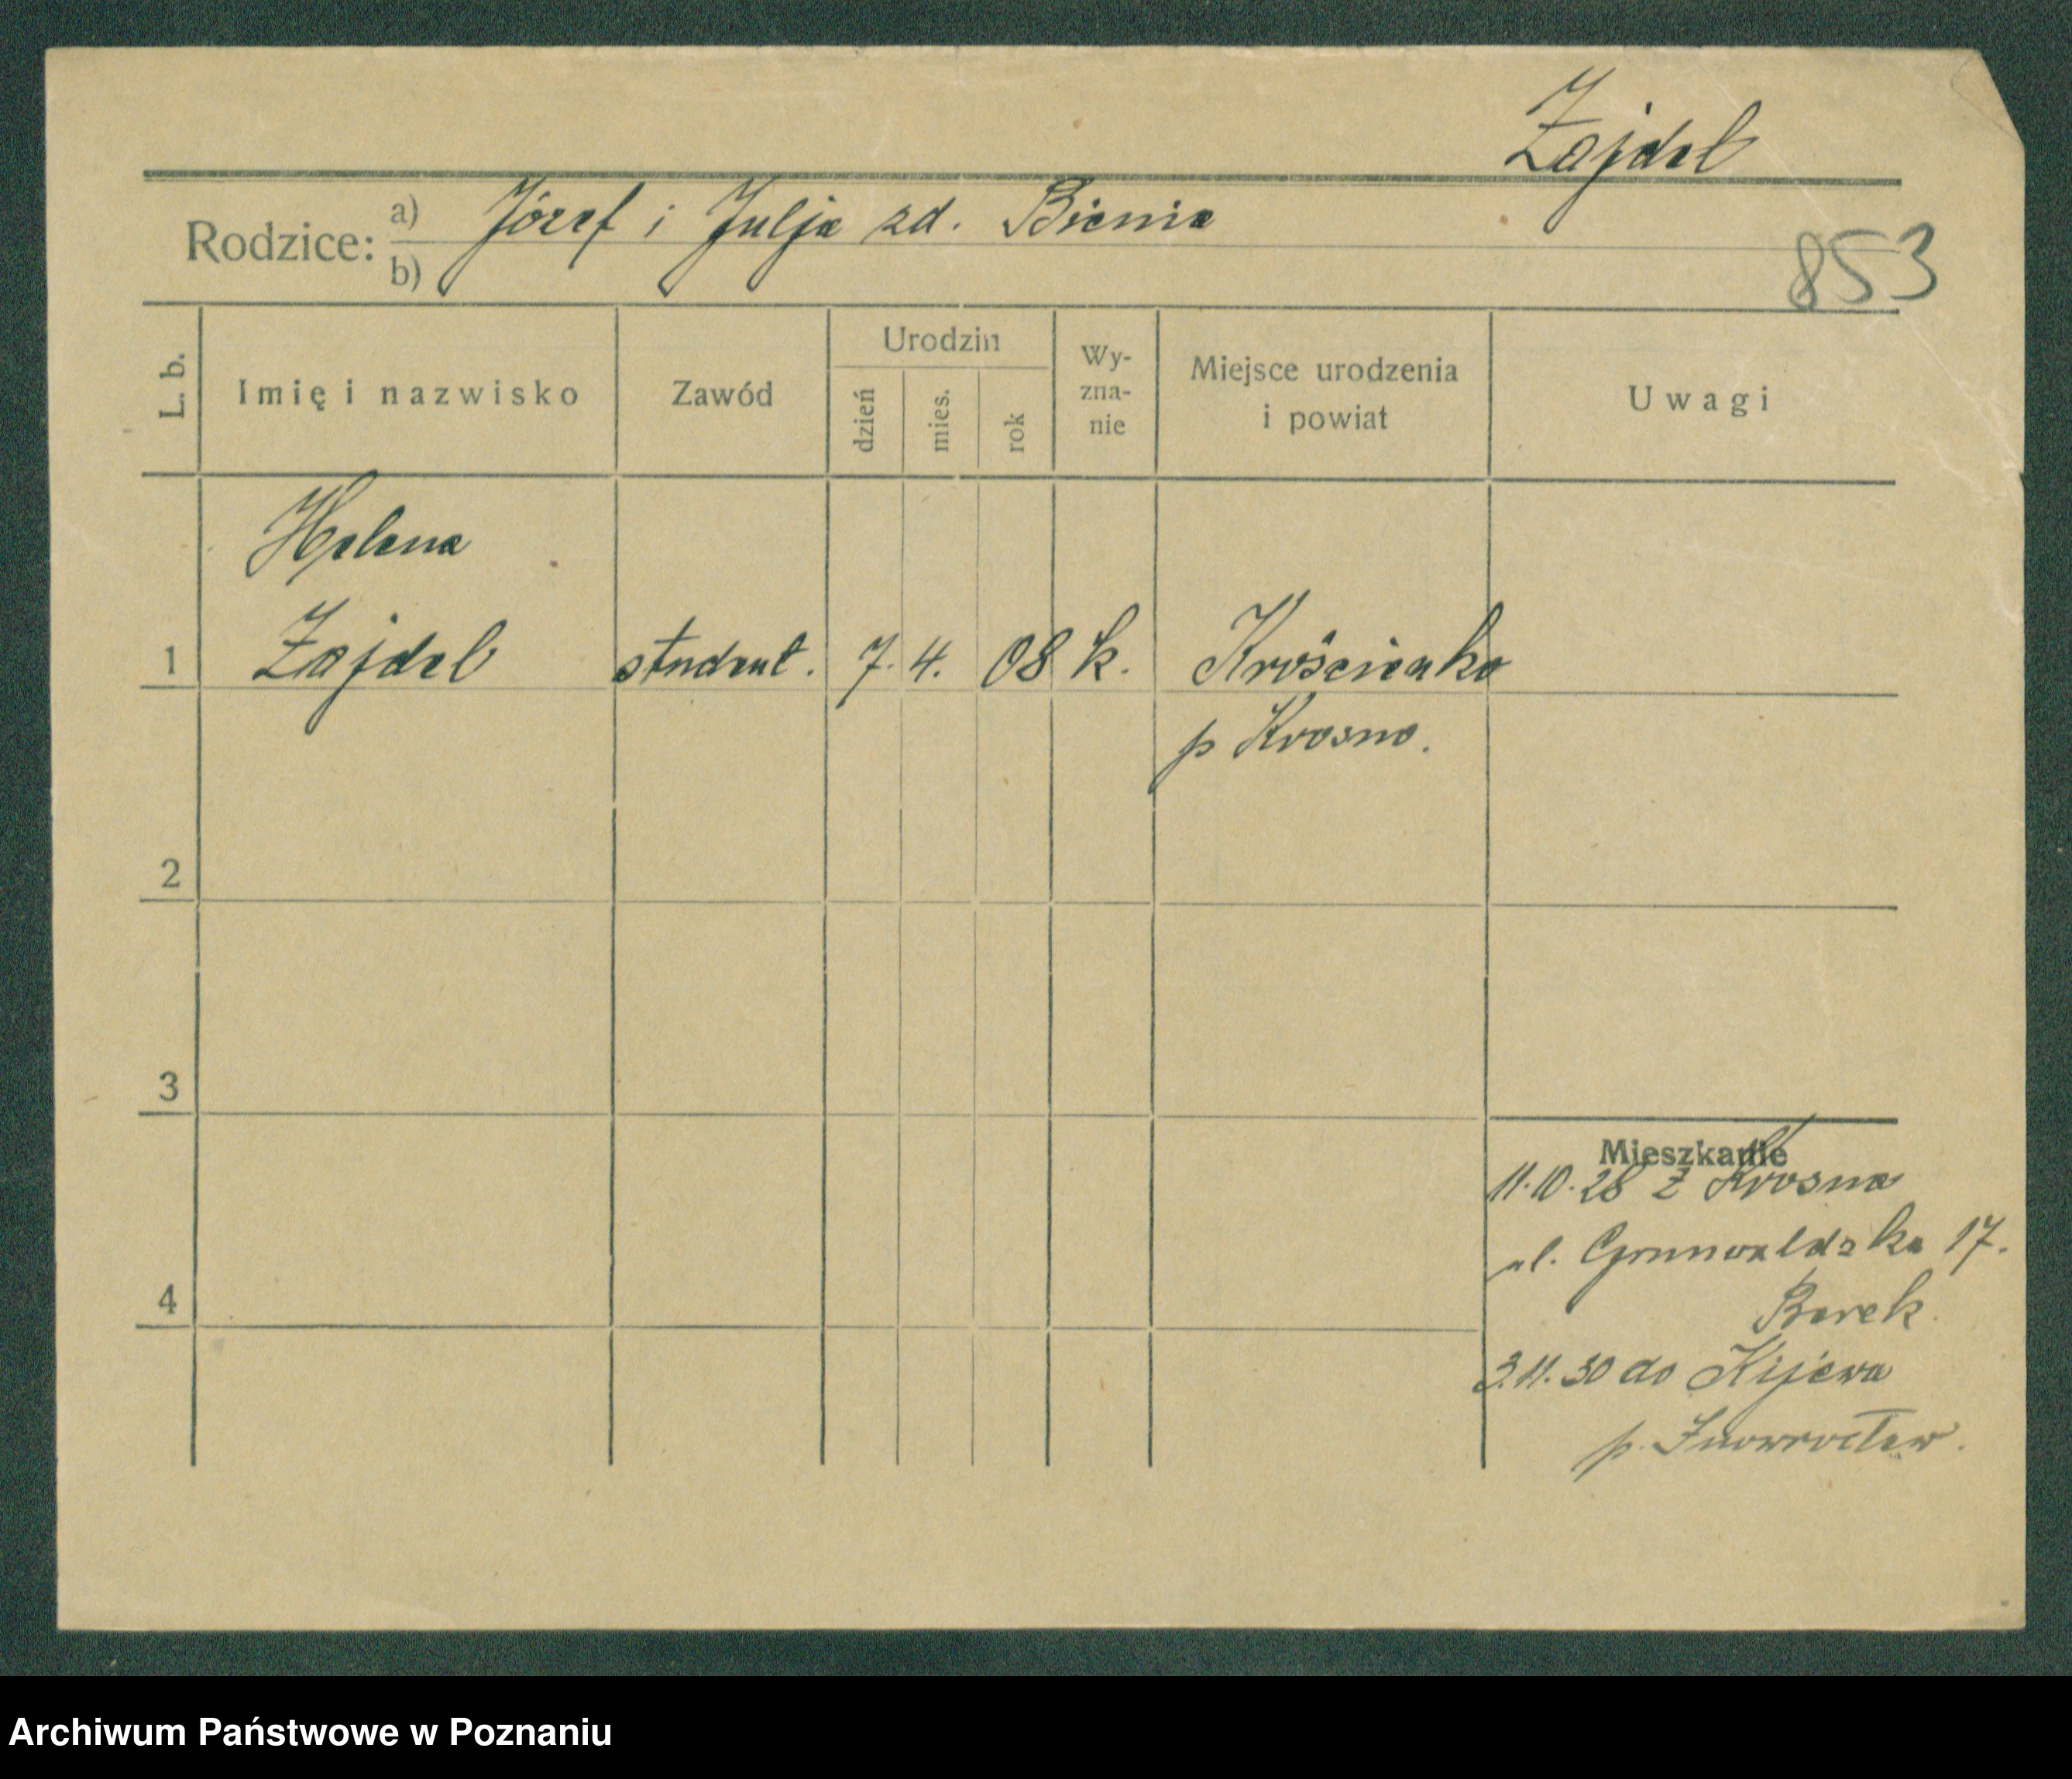 Zajdel
Rodzice: a) Józef i Julja zd. Bienia
b)
853
L. b.
Imię i nazwisko
Zawód
Urodzin
dzień
mies.
rok
Wy-
zna-
nie
Miejsce urodzenia
i powiat
Uwagi
Helena
1 Zajdel student. 7. 4. 08 k. Krościenko
p Krosno.
2
3
Mieszkanie
11.10.28 z Krosna
ul. Grunwaldzka 17.
4
Borek.
3.11.30 do Kijewa
p. Inowrocław.
Archiwum Państwowe w Poznaniu